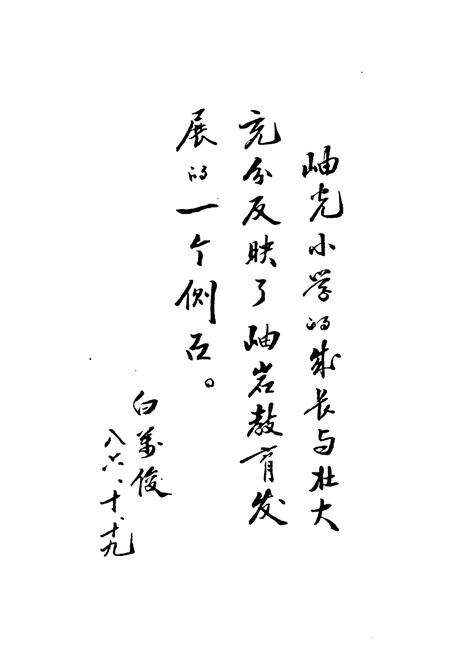 岫光小学的成长与壮大
充分反映了岫岩教育发
展的一个侧面。
白万俊
八六、十、十九